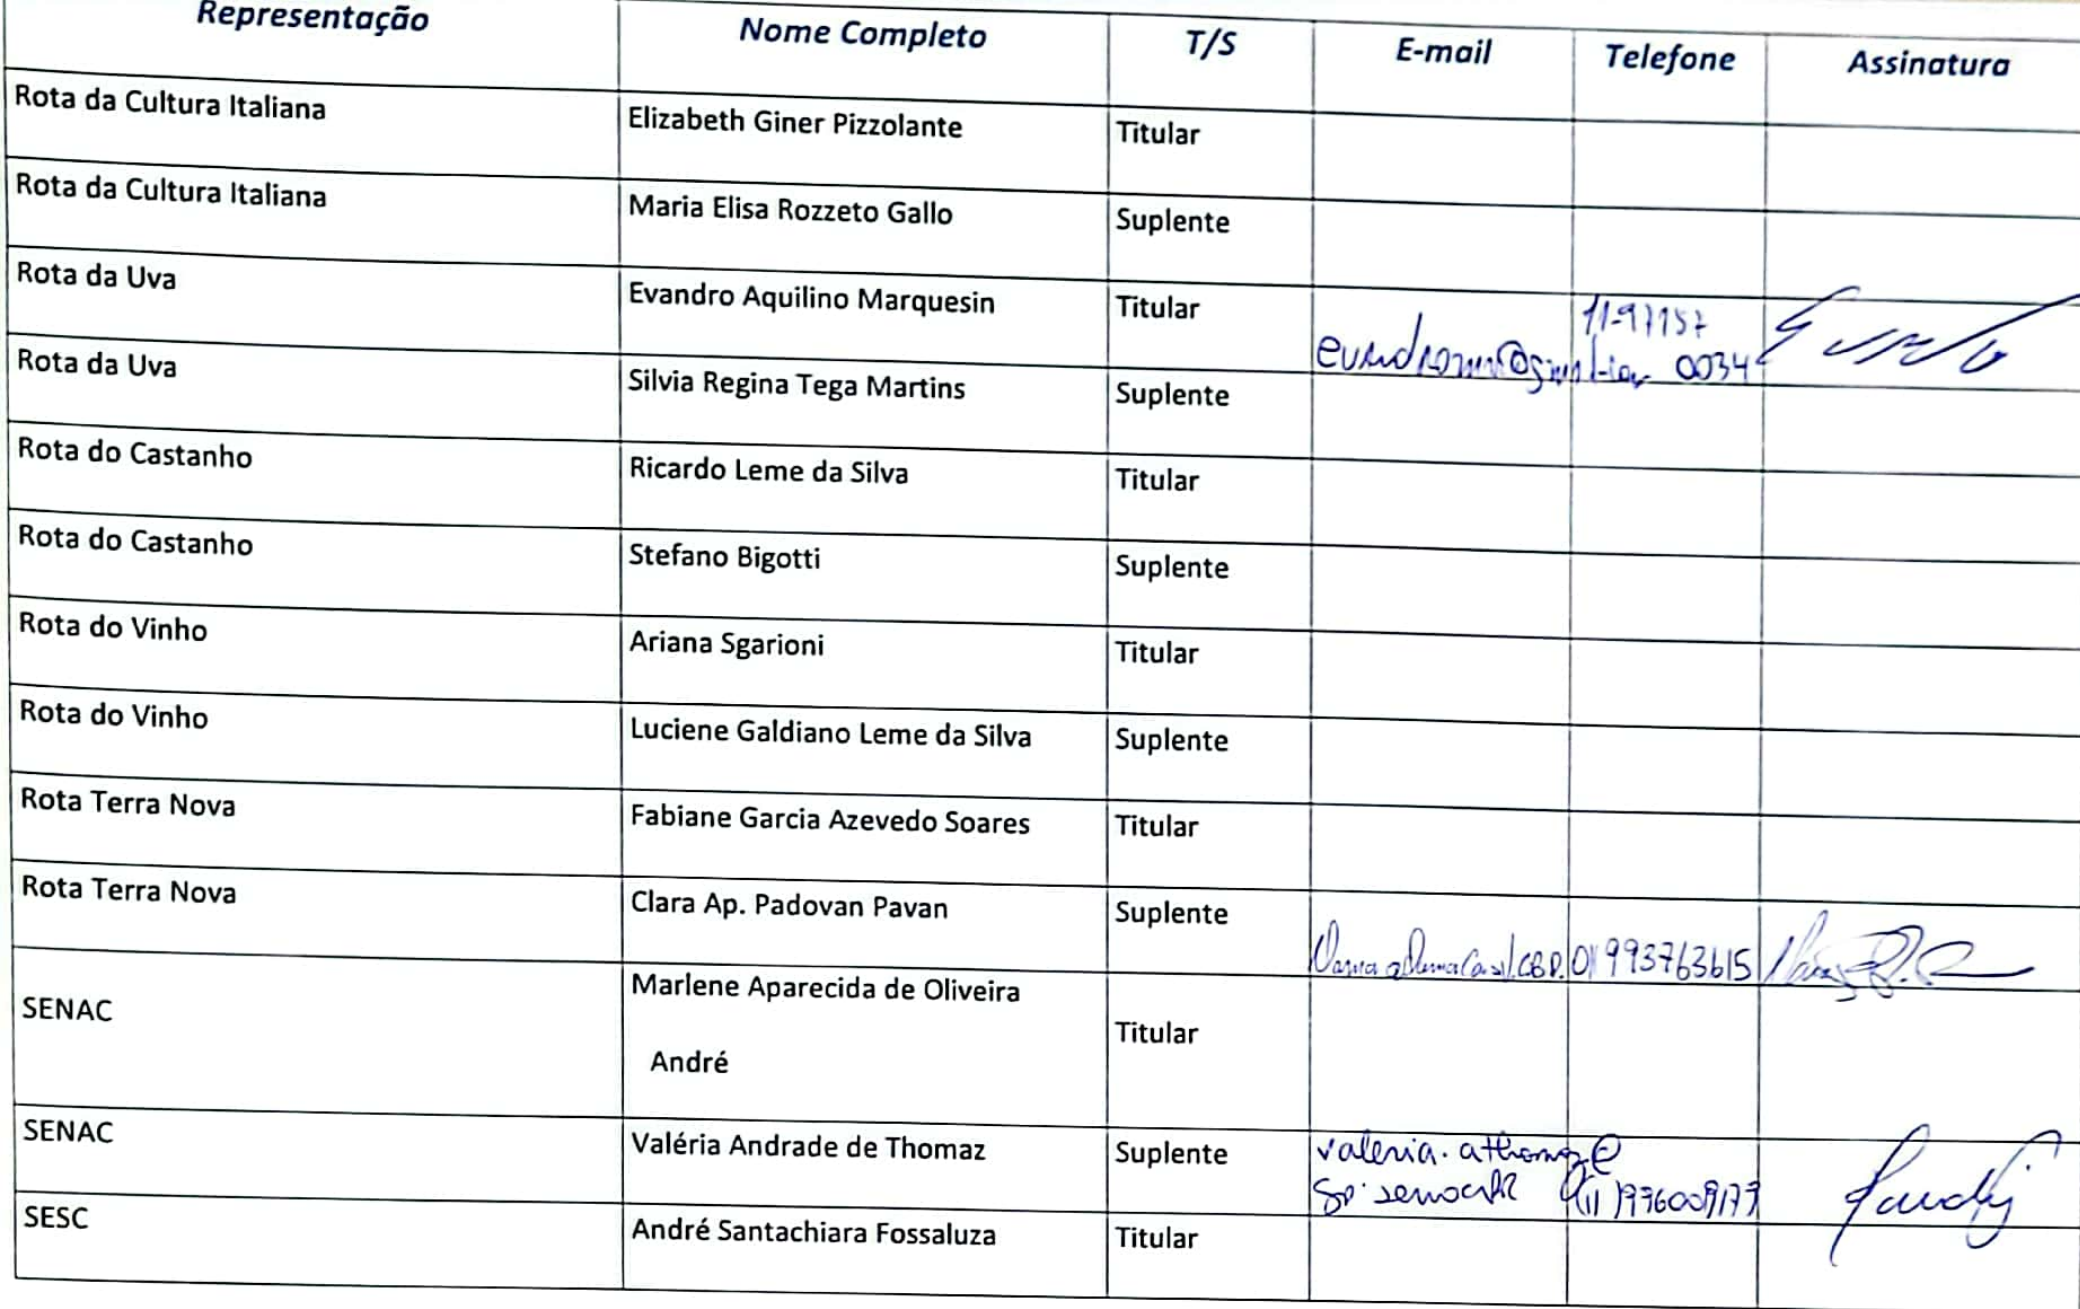 Representação Nome Completo T/S E-mail Telefone Assinatura
Rota da Cultura Italiana Elizabeth Giner Pizzolante Titular
Rota da Cultura Italiana Maria Elisa Rozzeto Gallo Suplente
Rota da Uva Evandro Aquilino Marquesin Titular 11-97157
0034
Rota da Uva Silvia Regina Tega Martins Suplente
Rota do Castanho Ricardo Leme da Silva Titular
Rota do Castanho Stefano Bigotti Suplente
Rota do Vinho Ariana Sgarioni Titular
Rota do Vinho Luciene Galdiano Leme da Silva Suplente
Rota Terra Nova Fabiane Garcia Azevedo Soares Titular
Rota Terra Nova Clara Ap. Padovan Pavan Suplente 993763615
SENAC Marlene Aparecida de Oliveira
André Titular
SENAC Valéria Andrade de Thomaz Suplente valeria.athomaz@
SESC André Santachiara Fossaluza Titular